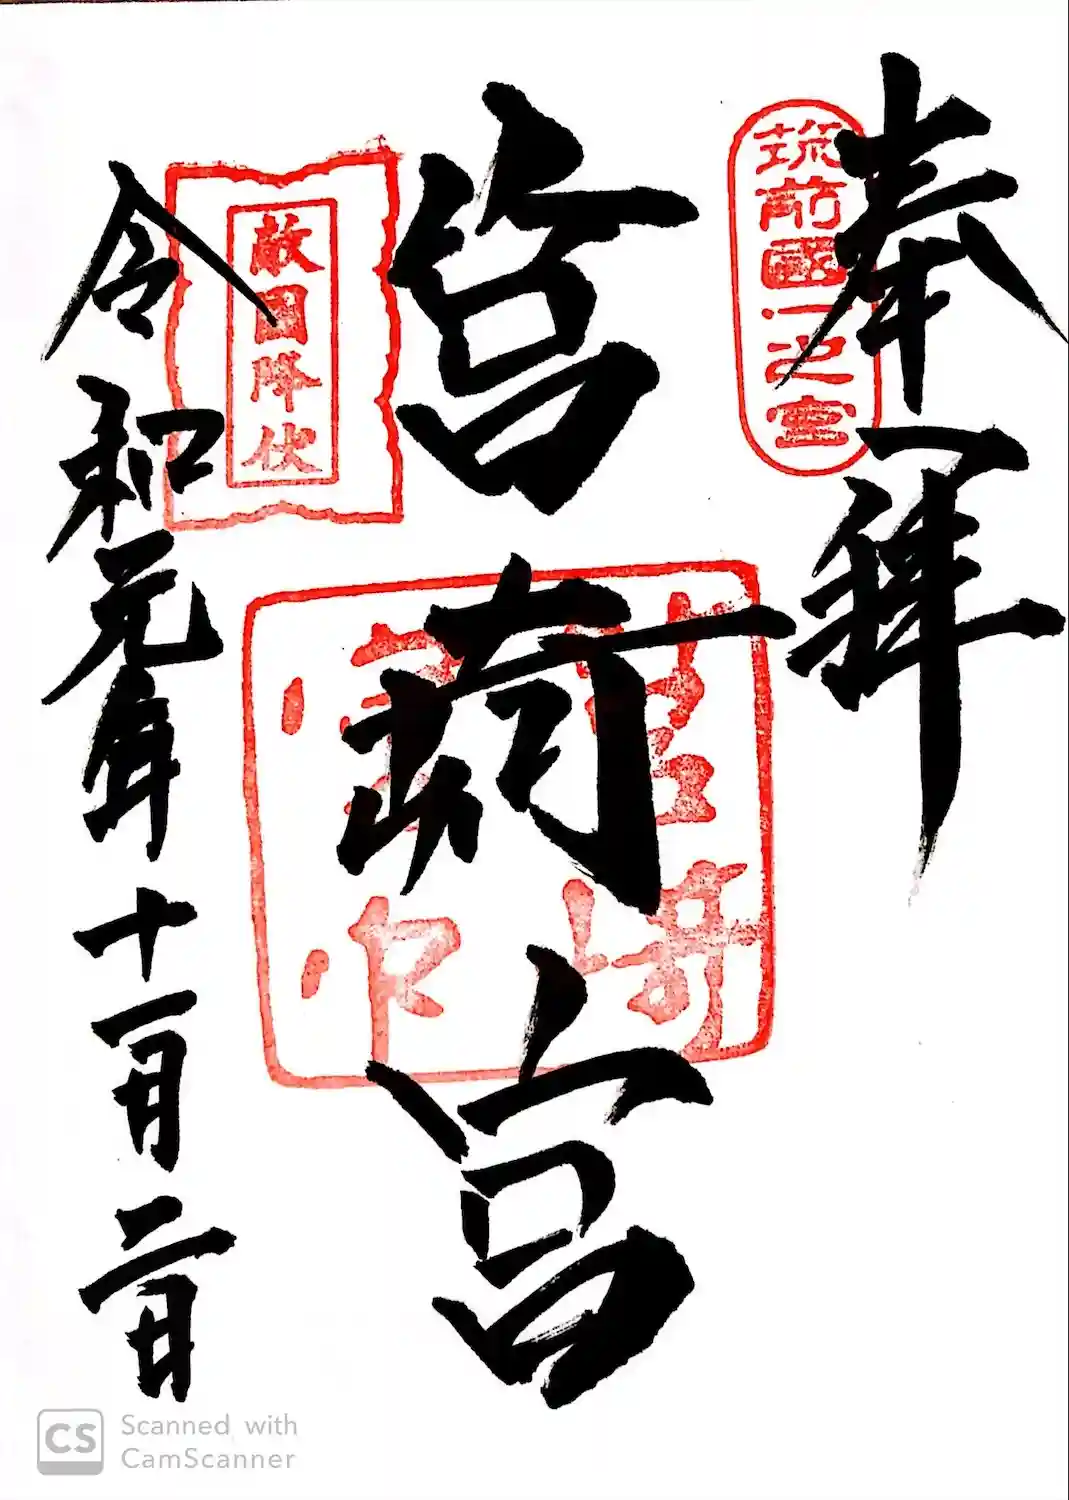 奉拝
筑前國一之宮
筥崎宮
敵國降伏
筥崎宮印
令和元年十一月二日
CS Scanned with
CamScanner